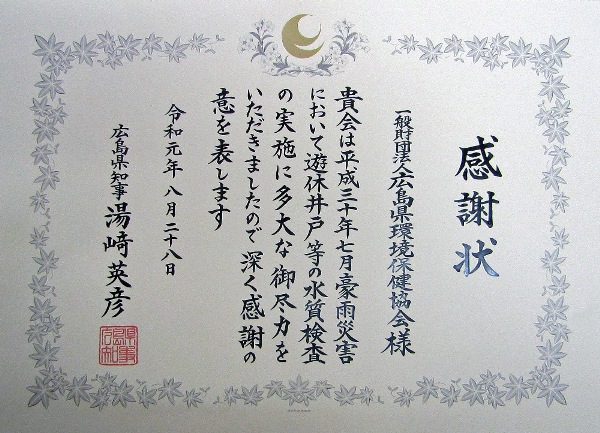 感謝状
一般財団法人広島県環境保健協会様
貴会は平成三十年七月豪雨災害
において遊休井戸等の水質検査
の実施に多大な御尽力を
いただきましたので深く感謝の
意を表します
令和元年八月二十八日
広島県知事湯﨑英彦